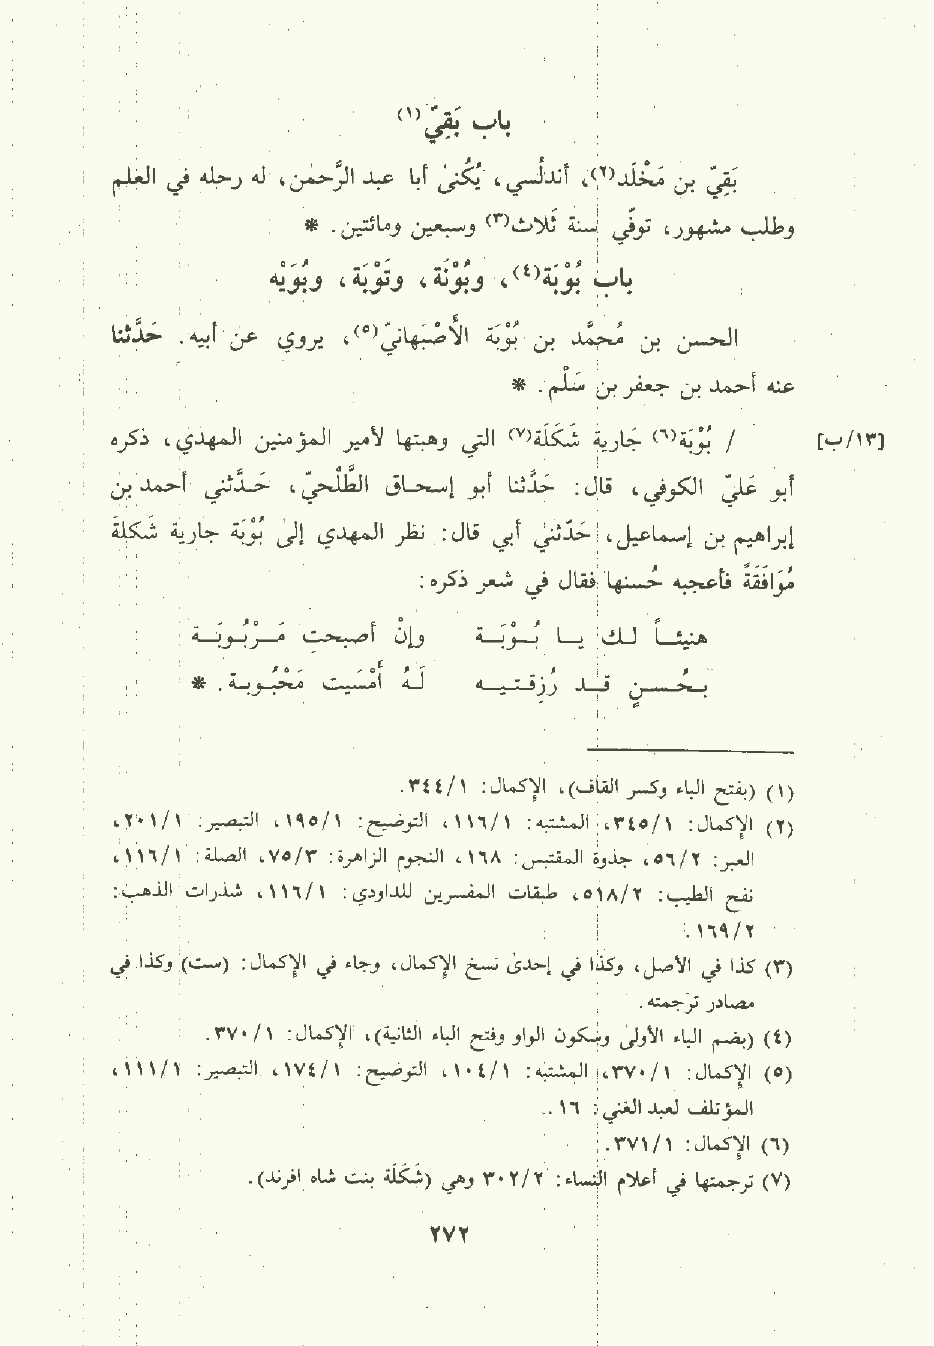 باب بَقِيّ(١)
بَقِيّ بن مَخْلَد(٢)، أندلُسي، يُكنىٰ أبا عبد الرَّحمٰن، له رحله في العلم
وطلب مشهور، توفّي سنة ثَلاث(٣) وسبعين ومائتين. *
باب بُوْبَة(٤)، وبُوْنَة، وتَوْبَة، وبُوَيْه
الحسن بن مُحمَّد بن بُوْبَة الأَصْبَهانيّ(٥)، يروي عن أبيه. حَدَّثنا
عنه أحمد بن جعفر بن سَلْم. *
[١٣/ب] / بُوْبَة(٦) جَارية شَكَلَة(٧) التي وهبتها لأمير المؤمنين المهدي، ذكره
أبو عَليّ الكوفي، قال: حَدَّثنا أبو إسحاق الطَّلْحيّ، حَدَّثني أحمد بن
إبراهيم بن إسماعيل، حَدّثني أبي قال: نظر المهدي إلىٰ بُوْبَة جارية شَكلَةَ
مُوَافَقَةً فأعجبه حُسنها فقال في شعر ذكره:
هنيئاً لك يا بُوْبَة وإنْ أصبحت مَرْبُوبَة
بحُسنٍ قد رُزقتيه لَهُ أَمْسَيت مَحْبُوبة. *
(١) (بفتح الباء وكسر القاف)، الإكمال: ٣٤٤/١.
(٢) الإكمال: ٣٤٥/١، المشتبه: ١١٦/١، التوضيح: ١٩٥/١، التبصير: ٢٠١/١،
العبر: ٥٦/٢، جذوة المقتبس: ١٦٨، النجوم الزاهرة: ٧٥/٣، الصلة: ١١٦/١،
نفح الطيب: ٥١٨/٢، طبقات المفسرين للداودي: ١١٦/١، شذرات الذهب:
١٦٩/٢.
(٣) كذا في الأصل، وكذا في إحدى نسخ الإكمال، وجاء في الإكمال: (ست) وكذا في
مصادر ترجمته.
(٤) (بضم الباء الأولىٰ وسكون الواو وفتح الباء الثانية)، الإكمال: ٣٧٠/١.
(٥) الإكمال: ٣٧٠/١، المشتبه: ١٠٤/١، التوضيح: ١٧٤/١، التبصير: ١١١/١،
المؤتلف لعبد الغني: ١٦.
(٦) الإكمال: ٣٧١/١.
(٧) ترجمتها في أعلام النساء: ٣٠٢/٢ وهي (شَكَلَة بنت شاه افرند).
٢٧٢